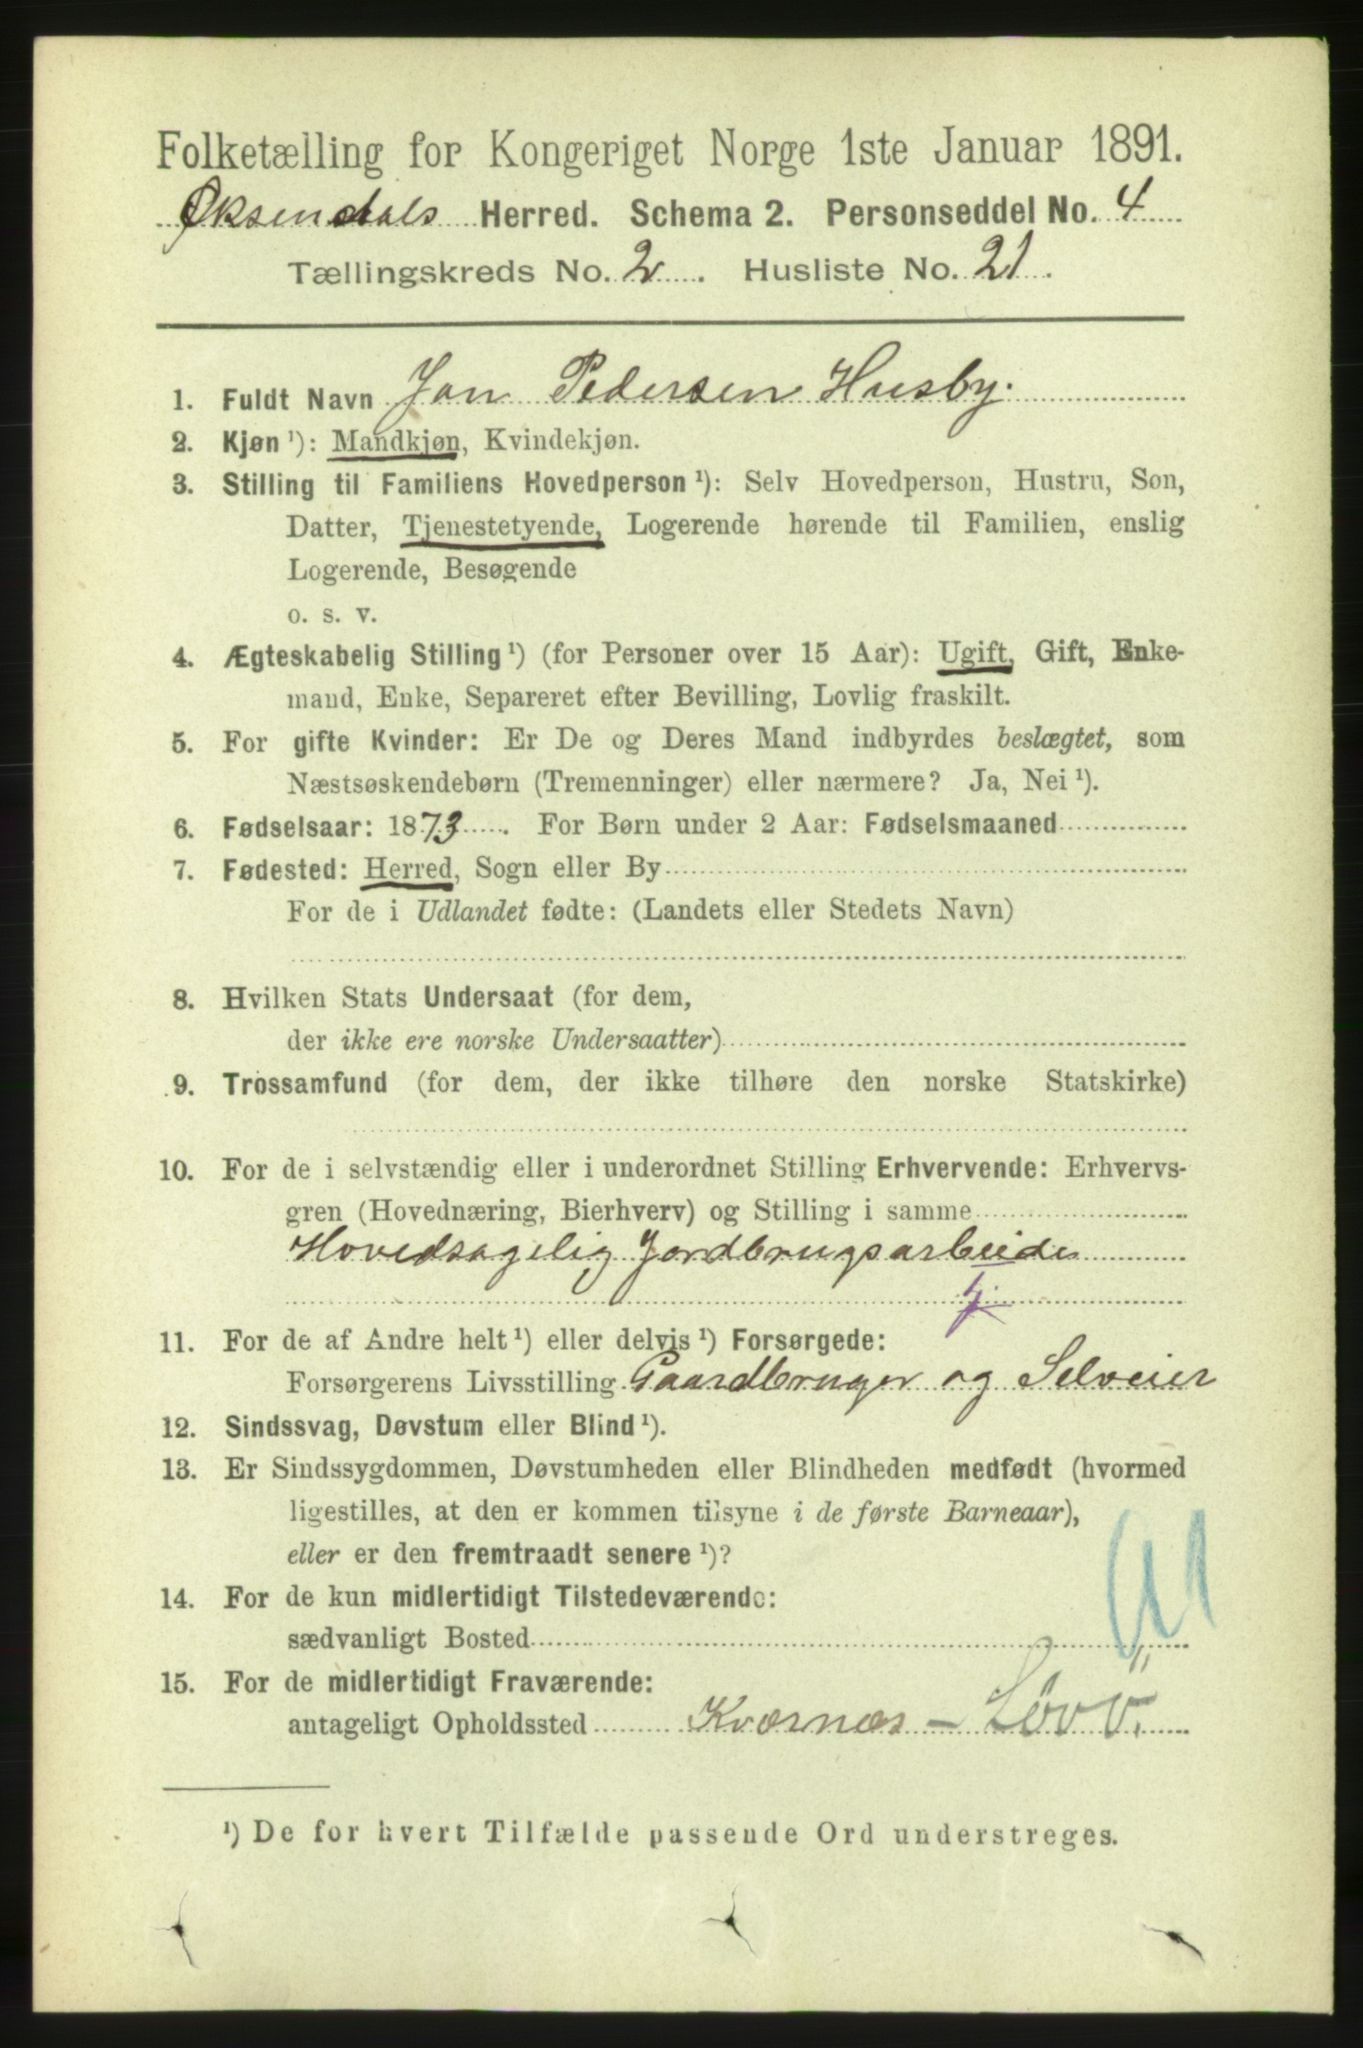 Folketælling for Kongeriget Norge 1ste Januar 1891.
Øksendals Herred. Schema 2. Personseddel No. 4
Tællingskreds No. 2. Husliste No. 21.
1. Fuldt Navn Jon Pedersen Husby.
2. Kjøn ¹): Mandkjøn, Kvindekjøn.
3. Stilling til Familiens Hovedperson ¹): Selv Hovedperson, Hustru, Søn,
Datter, Tjenestetyende, Logerende hørende til Familien, enslig
Logerende, Besøgende
o. s. v.
4. Ægteskabelig Stilling ¹) (for Personer over 15 Aar): Ugift, Gift, Enke-
mand, Enke, Separeret efter Bevilling, Lovlig fraskilt.
5. For gifte Kvinder: Er De og Deres Mand indbyrdes beslægtet, som
Næstsøskendebørn (Tremenninger) eller nærmere? Ja, Nei ¹).
6. Fødselsaar: 1873. For Børn under 2 Aar: Fødselsmaaned
7. Fødested: Herred, Sogn eller By
For de i Udlandet fødte: (Landets eller Stedets Navn)
8. Hvilken Stats Undersaat (for dem,
der ikke ere norske Undersaatter)
9. Trossamfund (for dem, der ikke tilhøre den norske Statskirke)
10. For de i selvstændig eller i underordnet Stilling Erhvervende: Erhvervs-
gren (Hovednæring, Bierhverv) og Stilling i samme
Hovedsagelig Jordbrugsarbeide
11. For de af Andre helt ¹) eller delvis ¹) Forsørgede:
Forsørgerens Livsstilling Gaardbruger og Selveier
12. Sindssvag, Døvstum eller Blind ¹).
13. Er Sindssygdommen, Døvstumheden eller Blindheden medfødt (hvormed
ligestilles, at den er kommen tilsyne i de første Barneaar),
eller er den fremtraadt senere ¹)?
14. For de kun midlertidigt Tilstedeværende:
sædvanligt Bosted
15. For de midlertidigt Fraværende:
antageligt Opholdssted Kværnæs –
¹) De for hvert Tilfælde passende Ord understreges.